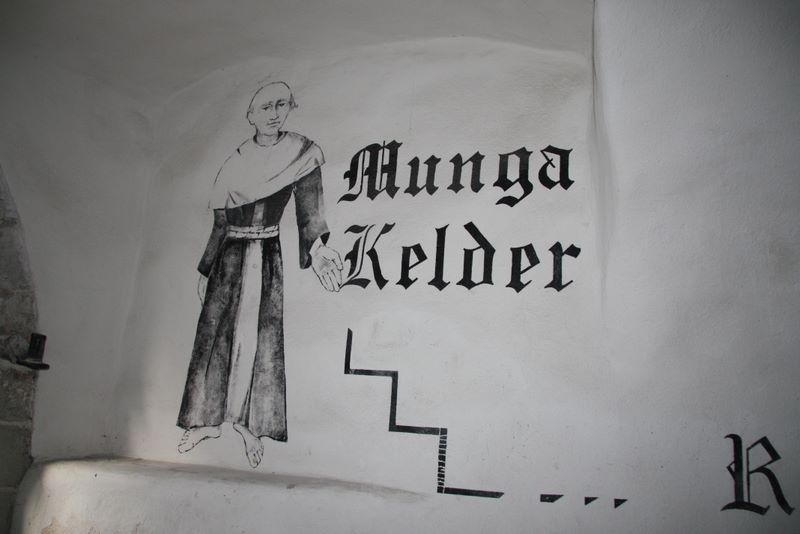 Munga
Kelder
R